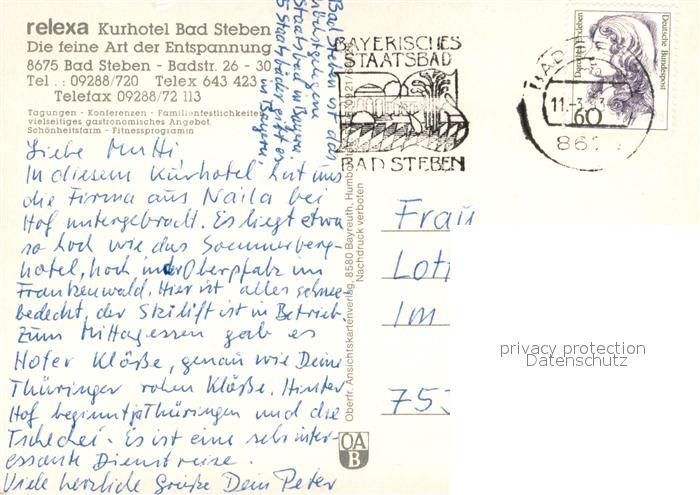 relexa Kurhotel Bad Steben
Die feine Art der Entspannung
8675 Bad Steben - Badstr. 26 - 30
Tel.: 09288/720 Telex 643 423
Telefax 09288/72 113
Tagungen - Konferenzen - Familienfestlichkeiten
vielseitiges gastronomisches Angebot
Schönheitsfarm - Fitnessprogramm
Bad Steben ist das
Staatsbad in Bayern.
5 Staatsbäder gibt es
in Bayern.
Liebe Mutti
In diesem Kurhotel hat uns
die Firma aus Naila bei
Hof untergebracht. Es liegt etwa
so hoch wie das Sommerberg-
hotel, hoch in der Oberpfalz im
Frankenwald. Hier ist alles schnee
bedeckt, der Skilift ist in Betrieb.
Zum Mittagessen gab es
Hofer Klöße, genau wie Deine
Thüringer rohen Klöße. Hinter
Hof beginnt ja Thüringen und die
Tschechei. Es ist eine sehr inter-
essante Dienstreise.
Viele herzliche Grüße Dein Peter
BAYERISCHES
STAATSBAD
BAD STEBEN
BAD
11.-3.
60
Deutsche Bundespost
Oberfr. Ansichtskartenverlag, 8580 Bayreuth, Humbo
Nachdruck verboten
OA
B
Frau
Im
75
privacy protection
Datenschutz